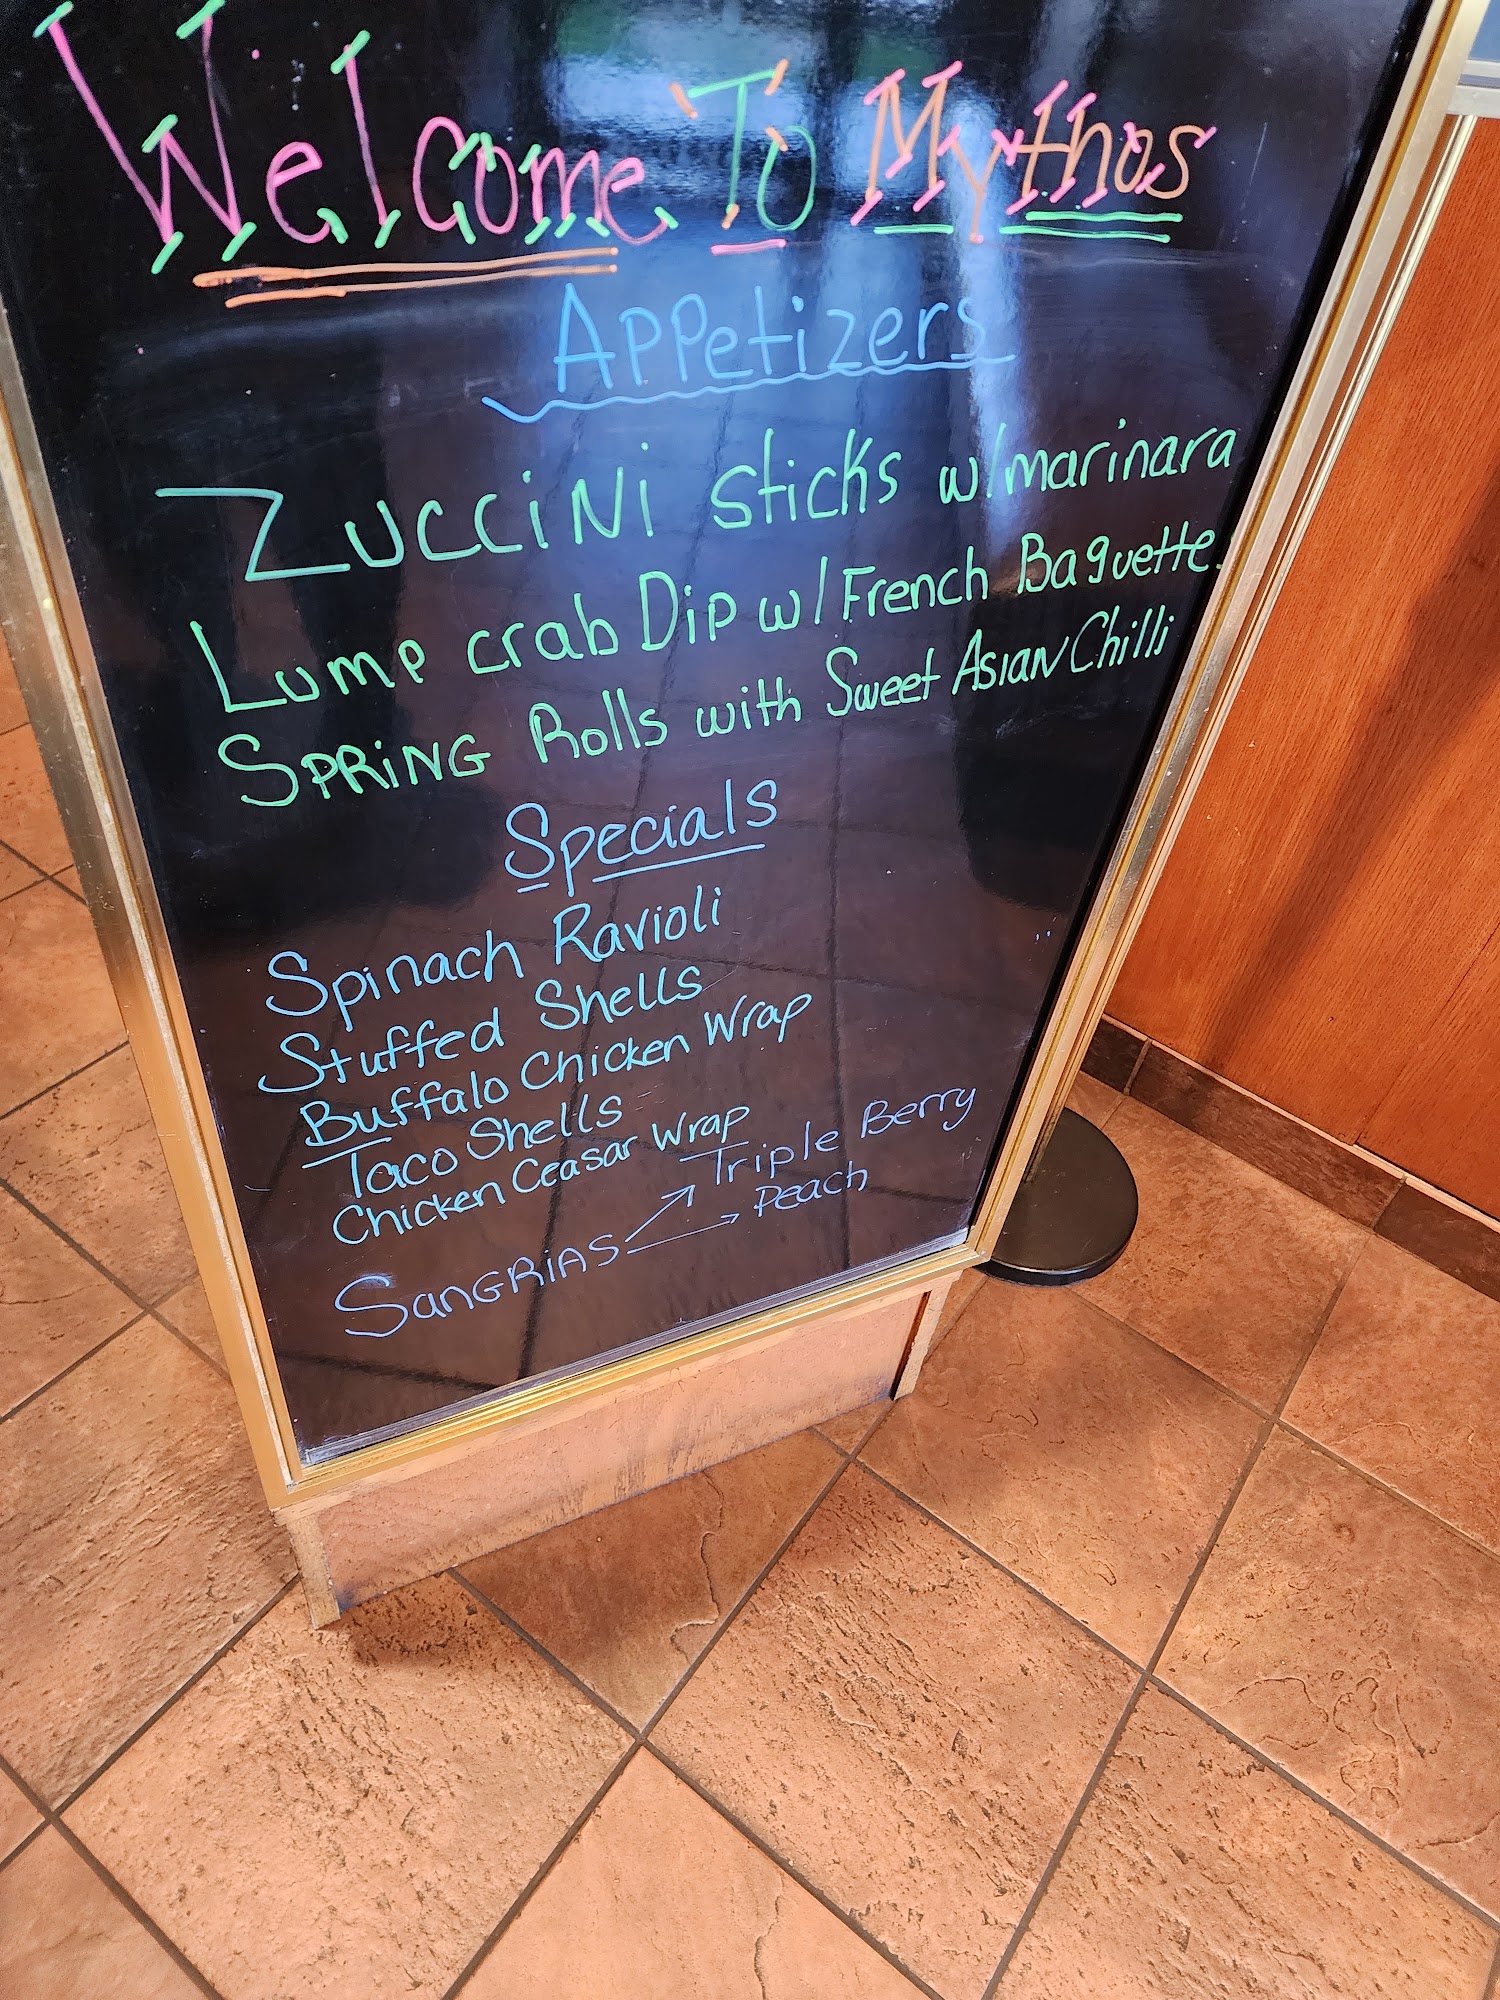 Welcome To Mythos
Appetizers
Zuccini Sticks w/marinara
Lump crab Dip w/French Baguette
Spring Rolls with Sweet Asian Chilli
Specials
Spinach Ravioli
Stuffed Shells
Buffalo Chicken Wrap
Taco Shells
Chicken Ceasar Wrap
Triple Berry
Sangrias Peach